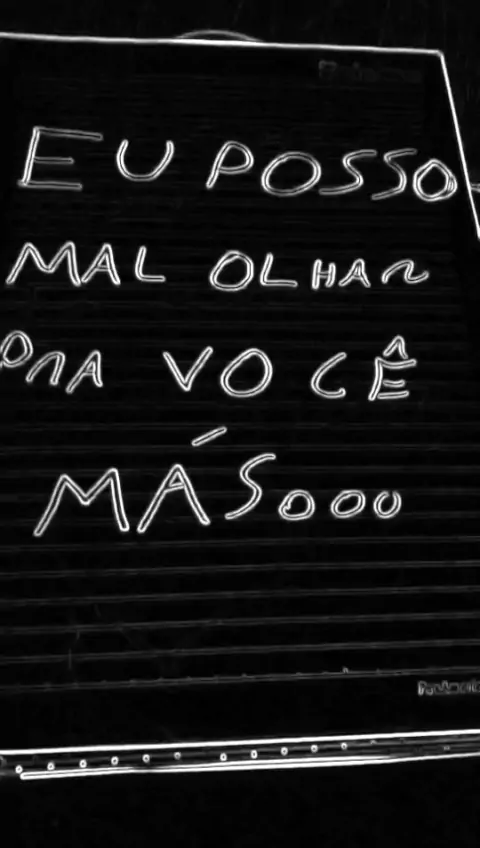 EU POSSO
MAL OLHAR
PRA VOCÊ
MÁS...